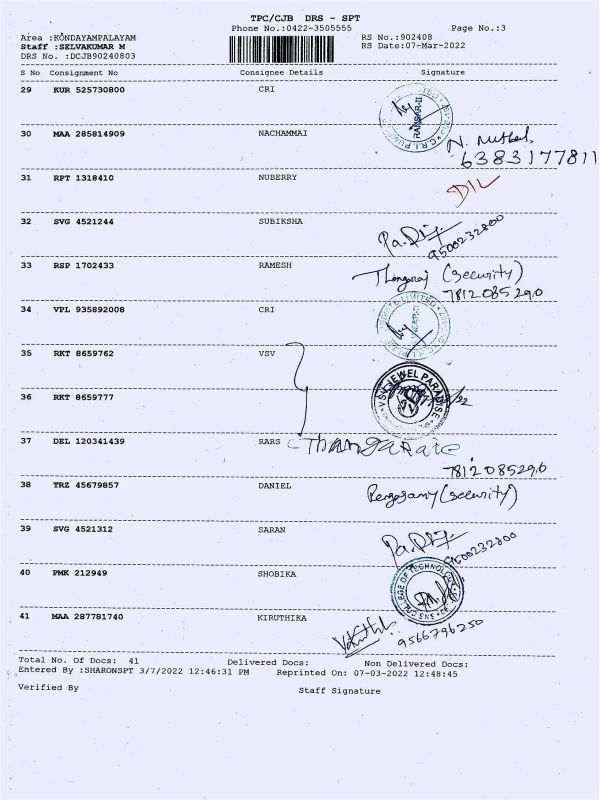 TPC/CJB DRS - SPT
Phone No.:0422-3505555 Page No.:3
Area :KONDAYAMPALAYAM RS No.:902408
Staff :SELVAKUMAR M RS Date:07-Mar-2022
DRS No. :DCJB90240803
S No Consignment No Consignee Details Signature
29 KUR 525730800 CRI
RAMSAR-II
30 MAA 285814909 NACHAMMAI
6383177811
31 RPT 1318410 NUBERRY
32 SVG 4521244 SUBIKSHA
9500232800
33 RSP 1702433 RAMESH Thangaraj (Security)
7812085290
34 VPL 935892008 CRI
35 RKT 8659762 VSV
VSV JEWEL PARADISE
36 RKT 8659777
37 DEL 120341439 RARS
7812085290
38 TRZ 45679857 DANIEL (security)
39 SVG 4521312 SARAN
9500232800
40 PMK 212949 SHOBIKA
SNS COLLEGE OF TECHNOLOGY
41 MAA 287781740 KIRUTHIKA
9566796250
Total No. Of Docs: 41 Delivered Docs: Non Delivered Docs:
Entered By :SHARONSPT 3/7/2022 12:46:31 PM Reprinted On: 07-03-2022 12:48:45
Verified By Staff Signature